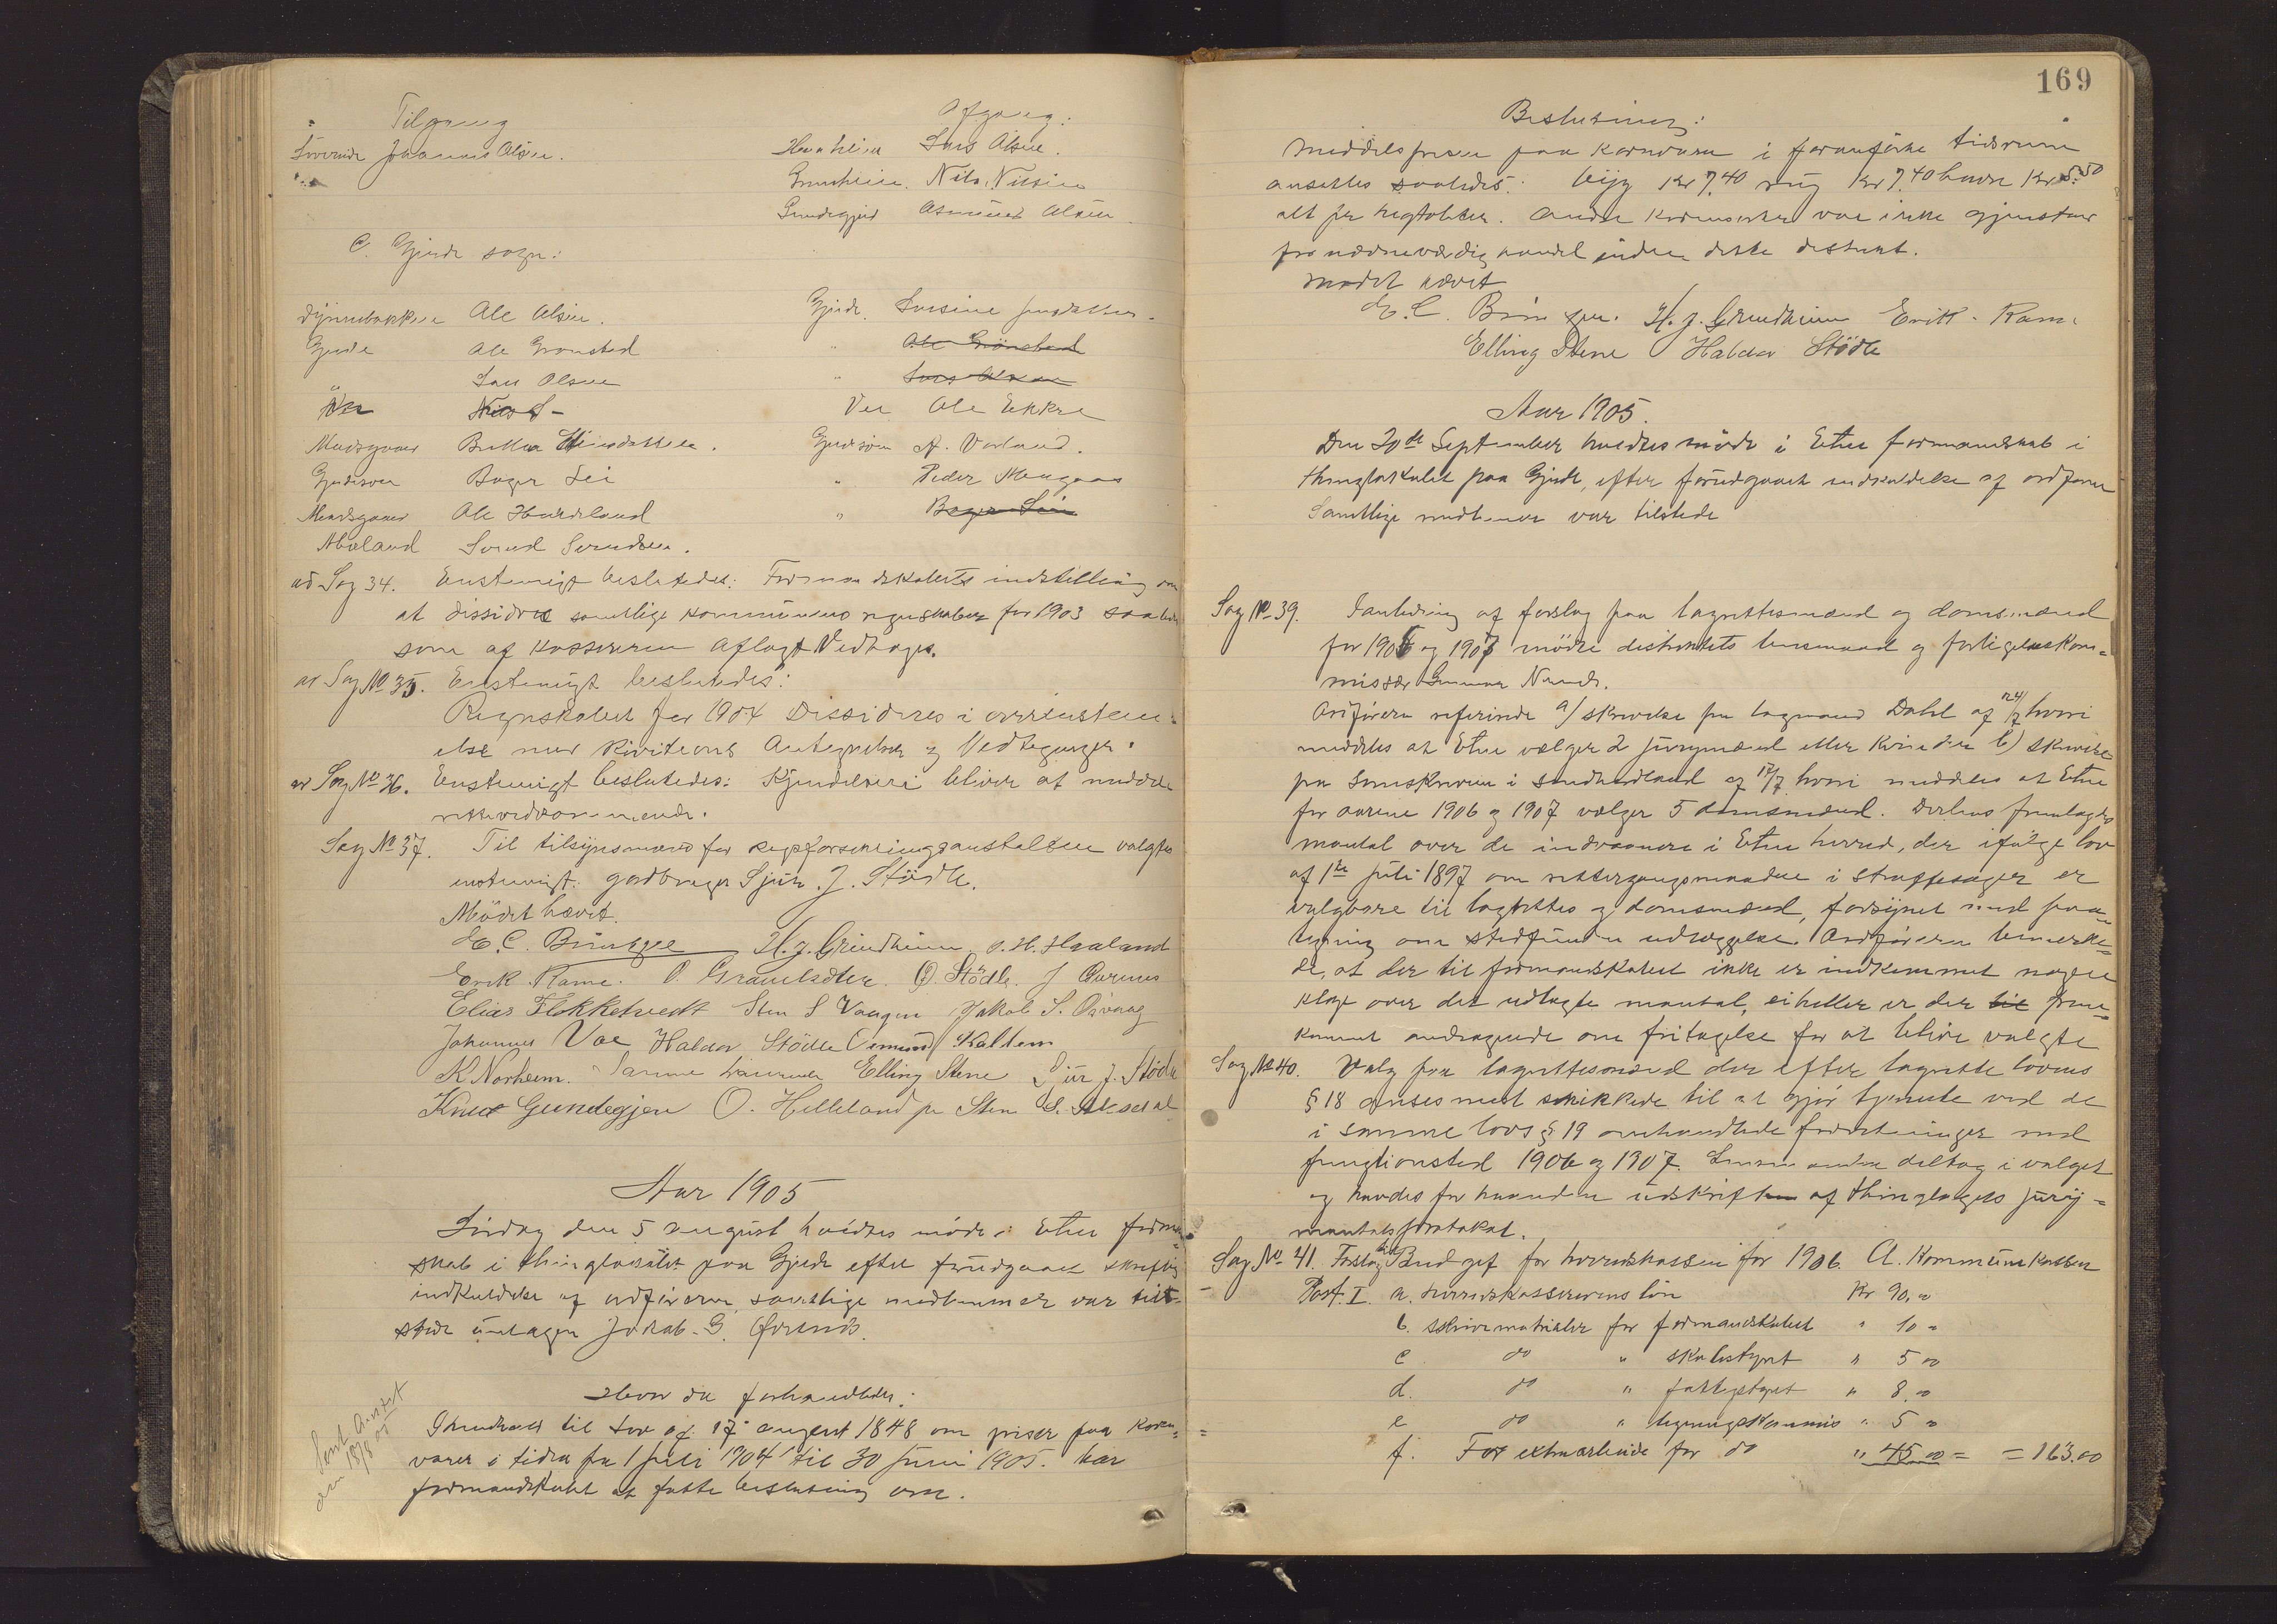 Tilgang
Afgang:
Johannes Olsen.
Lars Olsen.
Grindheim. Nils Nilsen
Osmund Olsen
C. Gjerde sogn:
Ole Olsen.
Gjerde
Gjerde Ole Grønsted
" Ole Grønsted
Lars Olsen
" Lars Olsen
Ver Ole Ekkre
Mundsgaard
A. Vorland.
Børger Lie
" Peder
Ole Hardeland
" Børger Lie
Svend Svendsen.
ad Sag 34. Enstemigt besluttedes: Formandskabets indstilling om
at dissidere samtlige kommunens regnskaber for 1903 saaledes
som af kassereren aflagt Vedtages.
ad Sag No 35. Enstemigt besluttedes:
Regnskabet for 1904 Dissideres i overenstem-
else med Rivitions Antegnelser og Vedtegninger.
ad Sag No 36. Enstemigt besluttedes: Kjendelsen bliver at meddele
rettevedkommende.
Sag No 37. Til tilsynsmand for anstalten valgtes
enstemigt gardbruger Sjur J. Stödle.
Mödet hævet.
E. C. H. J. Grindheim O. H. Haaland
Erik Rame. O. Stödle. J
Elias Flokketvedt Sten S Vaagen Jakob S.
Johannes Vae Haldor Stödle Osmund Kaltem
K Norheim. Elling Stene Sjur J. Stödle
Knut Gundegjerd O. Helleland pr Sten S.
Aar 1905
Lördag den 5 august holdtes möde i Etne formand-
skab i thinglokalet paa Gjerde efter forudgaaet skriftlig
indkaldelse af ordföreren, samtlige medlemmer var tilt
stede undtagen Jakob G.
Hvor da forhandledes:
Sent Amtet
den 18/8 05
I henhold til Lov af 17 august 1848 om priser paa korn-
varer i tiden fra 1 juli 1904 til 30 juni 1905. har
formandskabet at fatte beslutning om.
169
Beslutning:
Middelsprisen paa kornvarer i foranförte tidsrum
ansettes saaledes: byg Kr 7.40 rug Kr 7.40 havre Kr 5.50
alt per hegtoliter. Andre kornsorter var ikke gjenstand
for nævneværdig handel inden dette distrikt.
Mödet hævet
E. C. H. J. Grindheim Erik Rame
Elling Stene Haldor Stödle
Aar 1905.
Den 20de September holdtes möde i Etne formandskab i
thinglokalet paa Gjerde, efter forudgaaet indkaldelse af ordförer
Samtlige medlemer var tilstede
Sag No 39. I anledning af forslag paa lagrettesmænd og domsmænd
for 1906 og 1907 mödte distriktets lensmand og forligelseskom-
missær
Ordföreren refererede a) skrivelse fra lagmand Dahl af 24/7 hvori
meddeles at Etne vælger 2 jurymænd eller kvinder b) skrivelse
fra Sorenskriveren i Sundhordland af 17/7 hvori meddeles at Etne
for aarene 1906 og 1907 vælger 5 domsmænd. Derhos fremlagdes
mantal over de indvaanere i Etne herred, der ifölge lov
af 1te juli 1897 om rettergangsmaaden i straffesager er
valgbare til lagrettes og domsmænd, forsynet med paa-
tegning om stedfunden udlæggelse. Ordföreren bemerke-
de, at der til formandskabet ikke er indkommet nogen
klage over det udlagte mantal, ei heller er der til frem-
kommet andragende om fritagelse for at blive valgte
Sag No 40. Valg paa lagrettesmænd der efter lagrette lovens
§ 18 ansees mest skikkede til at gjör tjeneste ved de
i samme lovs § 19 omhandlede forretninger med
fungtionsted 1906 og 1907. Lensmanden deltog i valget
og havdes for haanden udskriften af thinglagets jury-
mantalsprotokol.
Sag No 41. Forslag til Budget for herredskassen for 1906. A. Kommunekassen
Post. I. a. herredskassererens lön Kr 90,00
b. Skrivematrialer for formandskabet " 10 "
c do " skolestyret " 5 00
d. do " fattigstyret " 8.00
e do " " 5 "
f. For extraarbeide for do " 45.00 = = 163.00